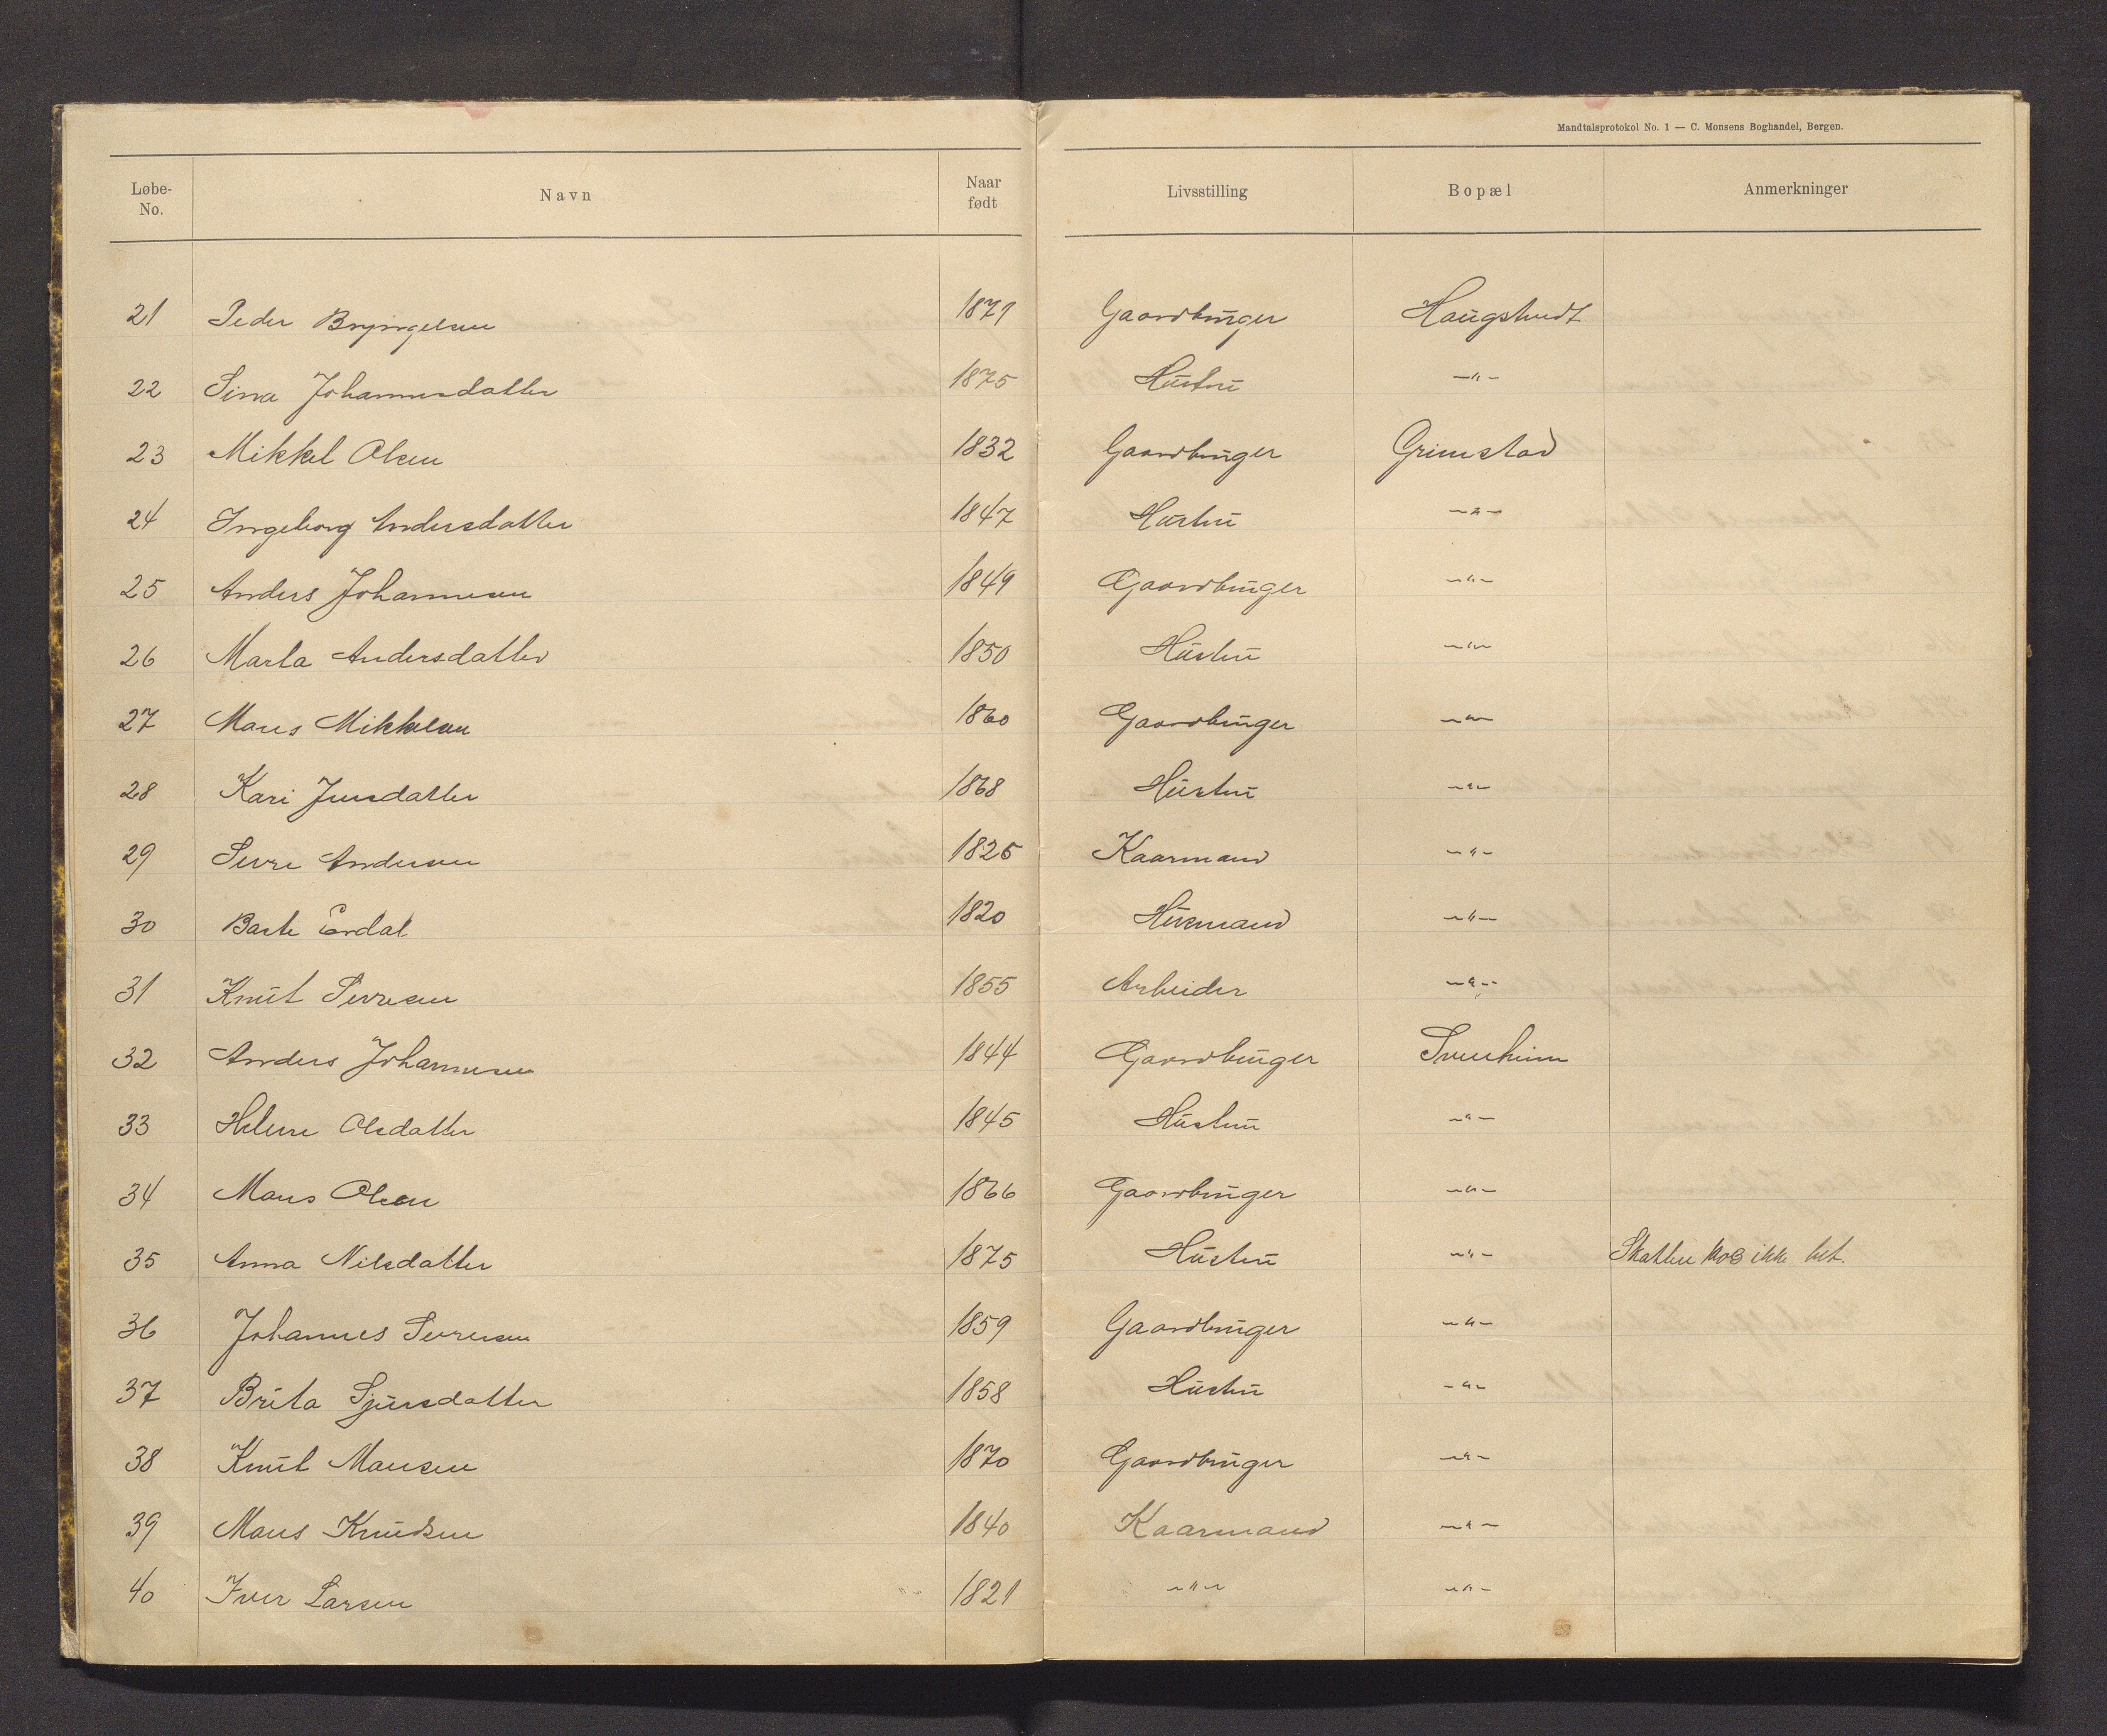 Mandtalsprotokol No. 1 — C. Monsens Boghandel, Bergen.
Løbe-No. Navn Naar født Livsstilling Bopæl Anmerkninger
21 Peder Bryngelsen 1871 Gaardbruger Haugstvedt
22 Sina Johannesdatter 1875 Hustru —"—
23 Mikkel Olsen 1832 Gaardbruger Grimstad
24 Ingeborg Andersdatter 1847 Hustru —"—
25 Anders Johannesen 1849 Gaardbruger —"—
26 Marta Andersdatter 1850 Hustru —"—
27 Mons Mikkelsen 1860 Gaardbruger —"—
28 Kari Jensdatter 1868 Hustru —"—
29 Sivre Andersen 1825 Kaarmand —"—
30 Erdal 1820 Husmand —"—
31 Knut Sivresen 1855 Arbeider —"—
32 Anders Johannesen 1844 Gaardbruger Svenheim
33 Helene Olsdatter 1845 Hustru —"—
34 Mons Olsen 1866 Gaardbruger —"—
35 Anna Nilsdatter 1875 Hustru —"— Skatten ikke bet.
36 Johannes Sivresen 1859 Gaardbruger —"—
37 Brita Sjursdatter 1858 Hustru —"—
38 Knut Monsen 1870 Gaardbruger —"—
39 Mons Knudsen 1840 Kaarmand —"—
40 Iver Larsen 1821 —"— —"—